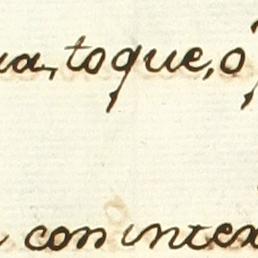 ua, toque, o
con intex